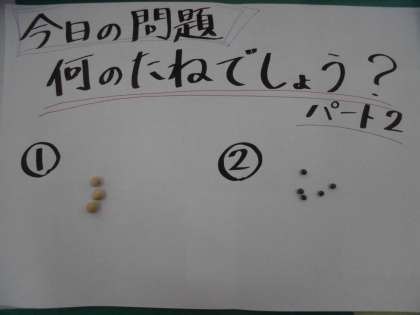 今日の問題
何のたねでしょう?
パート2
① ②